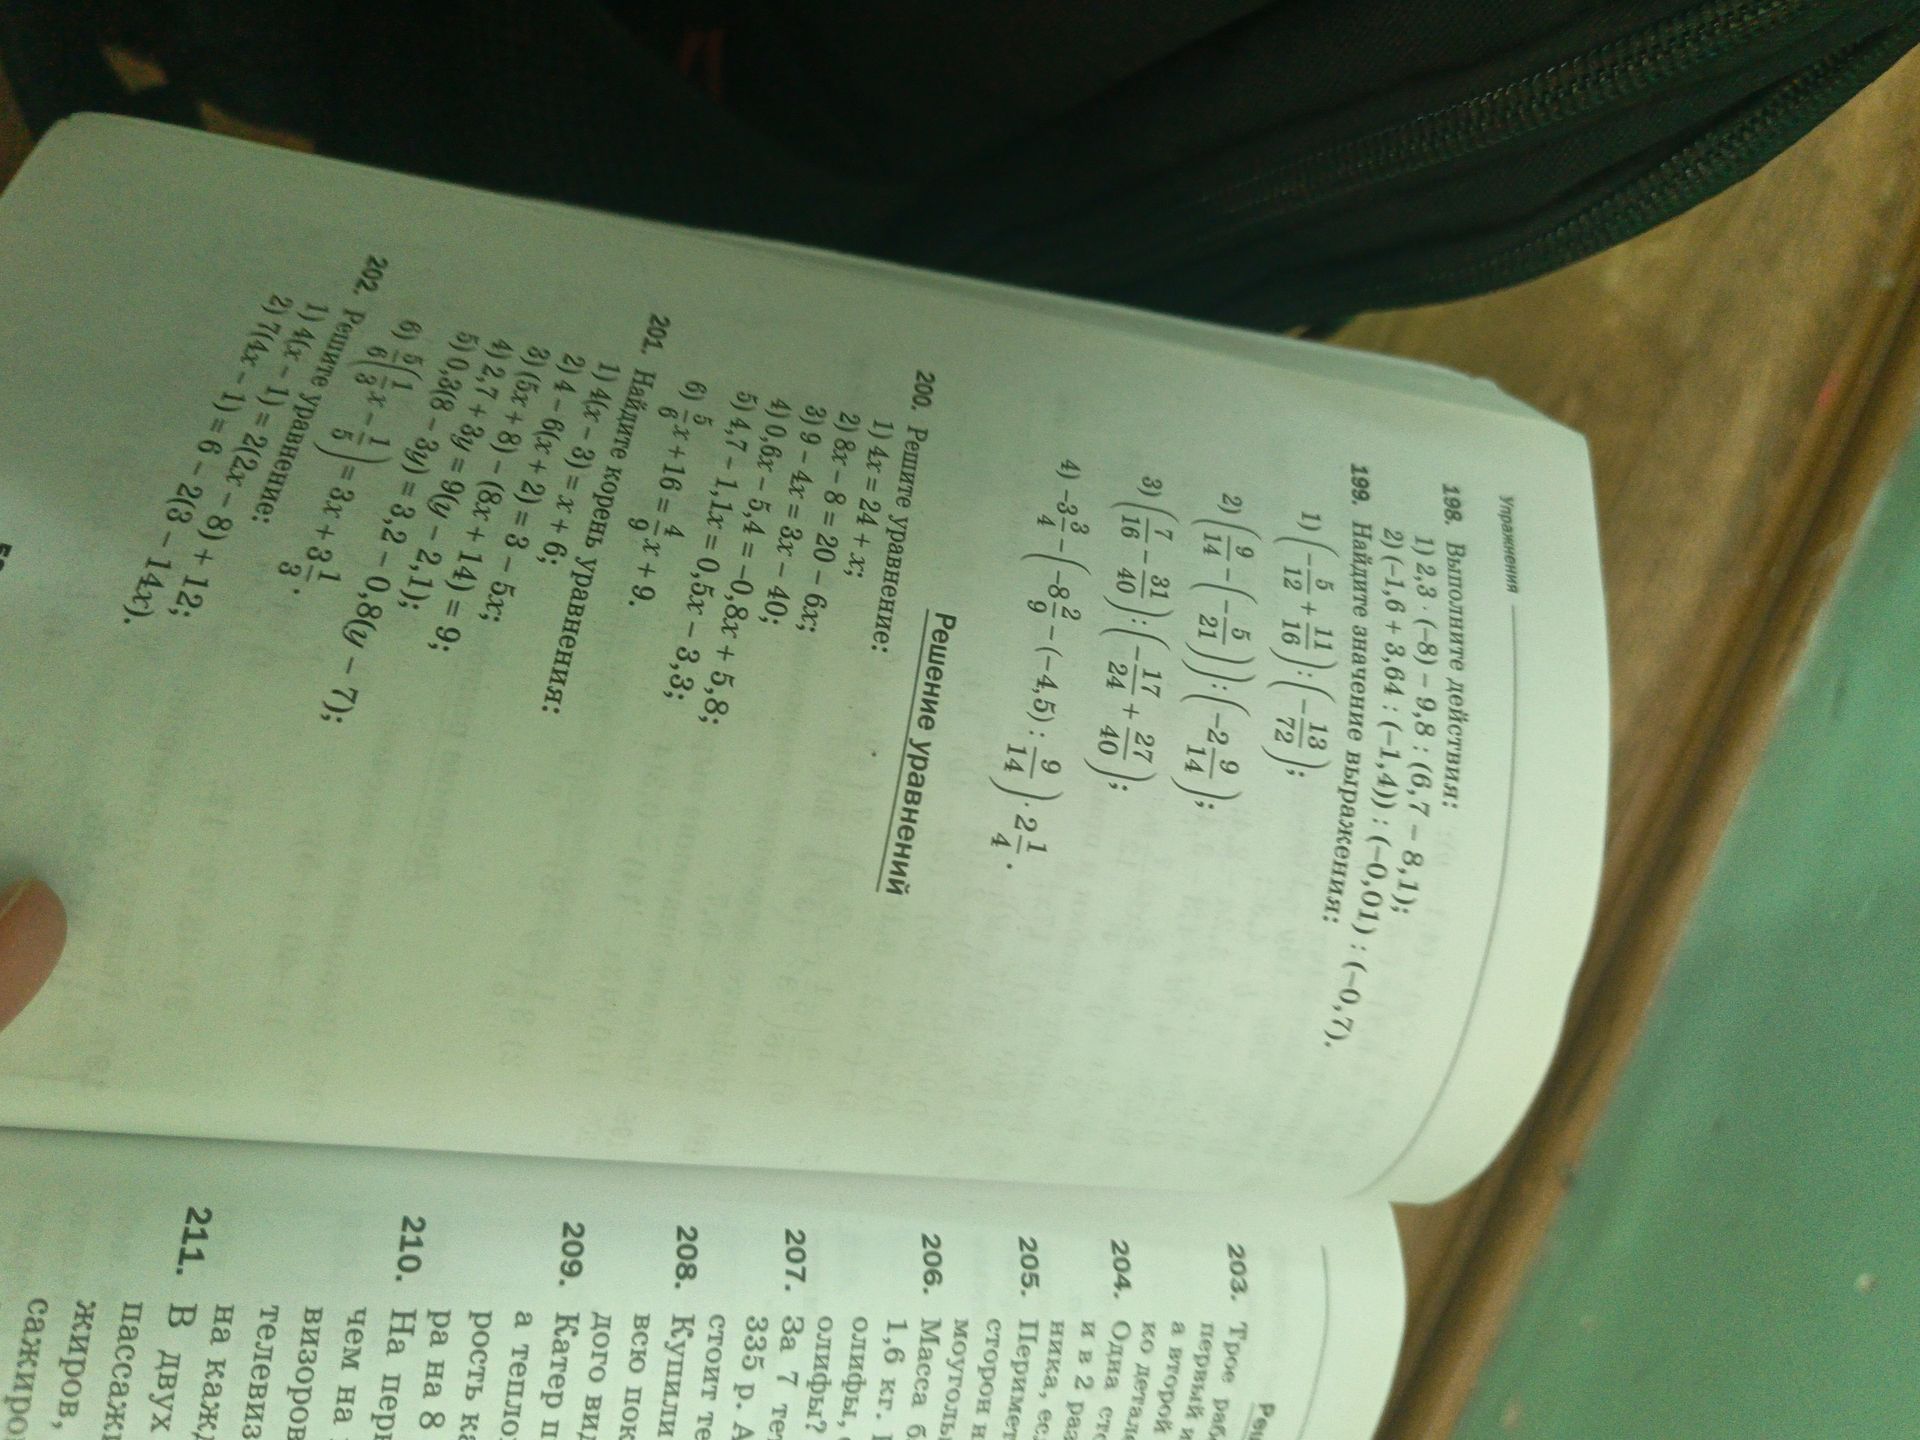 Упражнения
198. Выполните действия:
1) 2,3 · (−8) − 9,8 : (6,7 − 8,1);
2) (−1,6 + 3,64 : (−1,4)) : (−0,01) : (−0,7).
199. Найдите значение выражения:
1) (−5/12 + 11/16) : (−13/72);
2) (9/14 − (−5/21)) : (−2 9/14);
3) (7/16 − 31/40) : (−17/24 + 27/40);
4) −3 3/4 − (−8 2/9 − (−4,5) : 9/14) · 2 1/4.
Решение уравнений
200. Решите уравнение:
1) 4x = 24 + x;
2) 8x − 8 = 20 − 6x;
3) 9 − 4x = 3x − 40;
4) 0,6x − 5,4 = −0,8x + 5,8;
5) 4,7 − 1,1x = 0,5x − 3,3;
6) 5/6 x + 16 = 4/9 x + 9.
201. Найдите корень уравнения:
1) 4(x − 3) = x + 6;
2) 4 − 6(x + 2) = 3 − 5x;
3) (5x + 8) − (8x + 14) = 9;
4) 2,7 + 3y = 9(y − 2,1);
5) 0,3(8 − 3y) = 3,2 − 0,8(y − 7);
6) 5/6 (1/3 x − 1/5) = 3x + 3 1/3.
202. Решите уравнение:
1) 4(x − 1) = 2(2x − 8) + 12;
2) 7(4x − 1) = 6 − 2(3 − 14x).
203. Трое
первый
а второй
ко
204. Одна
и в 2
ника,
205.
сторон
206. Масса
1,6 кг.
олифы,
олифы?
207. За 7
335 р.
стоит
208. Купили
всю
дого
209. Катер
а
рость
ра на 8
210. На
чем на
211. В двух
на
жиров,